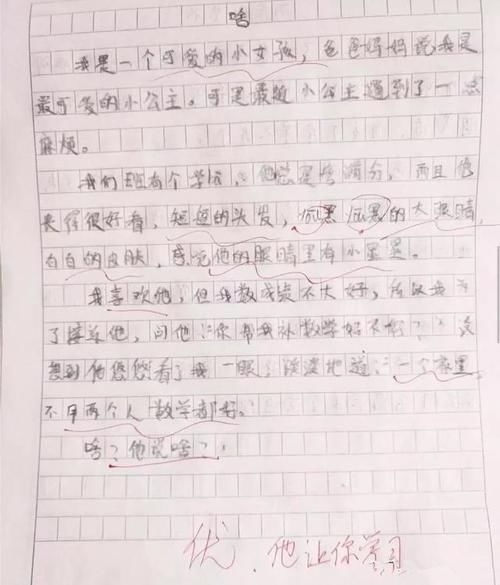 啥
我是一个可爱的小女孩，爸爸妈妈说我是
最可爱的小公主。可是最近小公主遇到了一点
麻烦。
我们班有个学霸，他总是考满分，而且他
长得很好看，短短的头发，黑黑的大眼睛，
白白的皮肤，感觉他的眼睛里有小星星。
我喜欢他，但我数成绩不大好，所以我为
了接近他，问他：“你帮我补数学好不好？”没
想到他悠悠看了我一眼，淡淡地道：“一个家里
不用两个人数学都好。
啥？他说啥？
优．他让你学习